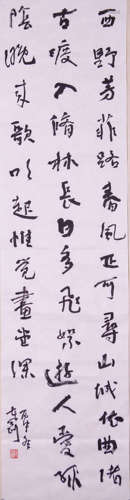 西野芳菲路春風正可尋山城依曲渚
古渡入脩林長日多飛絮遊人愛綠
陰晚来歌吹起惟覺畫堂深